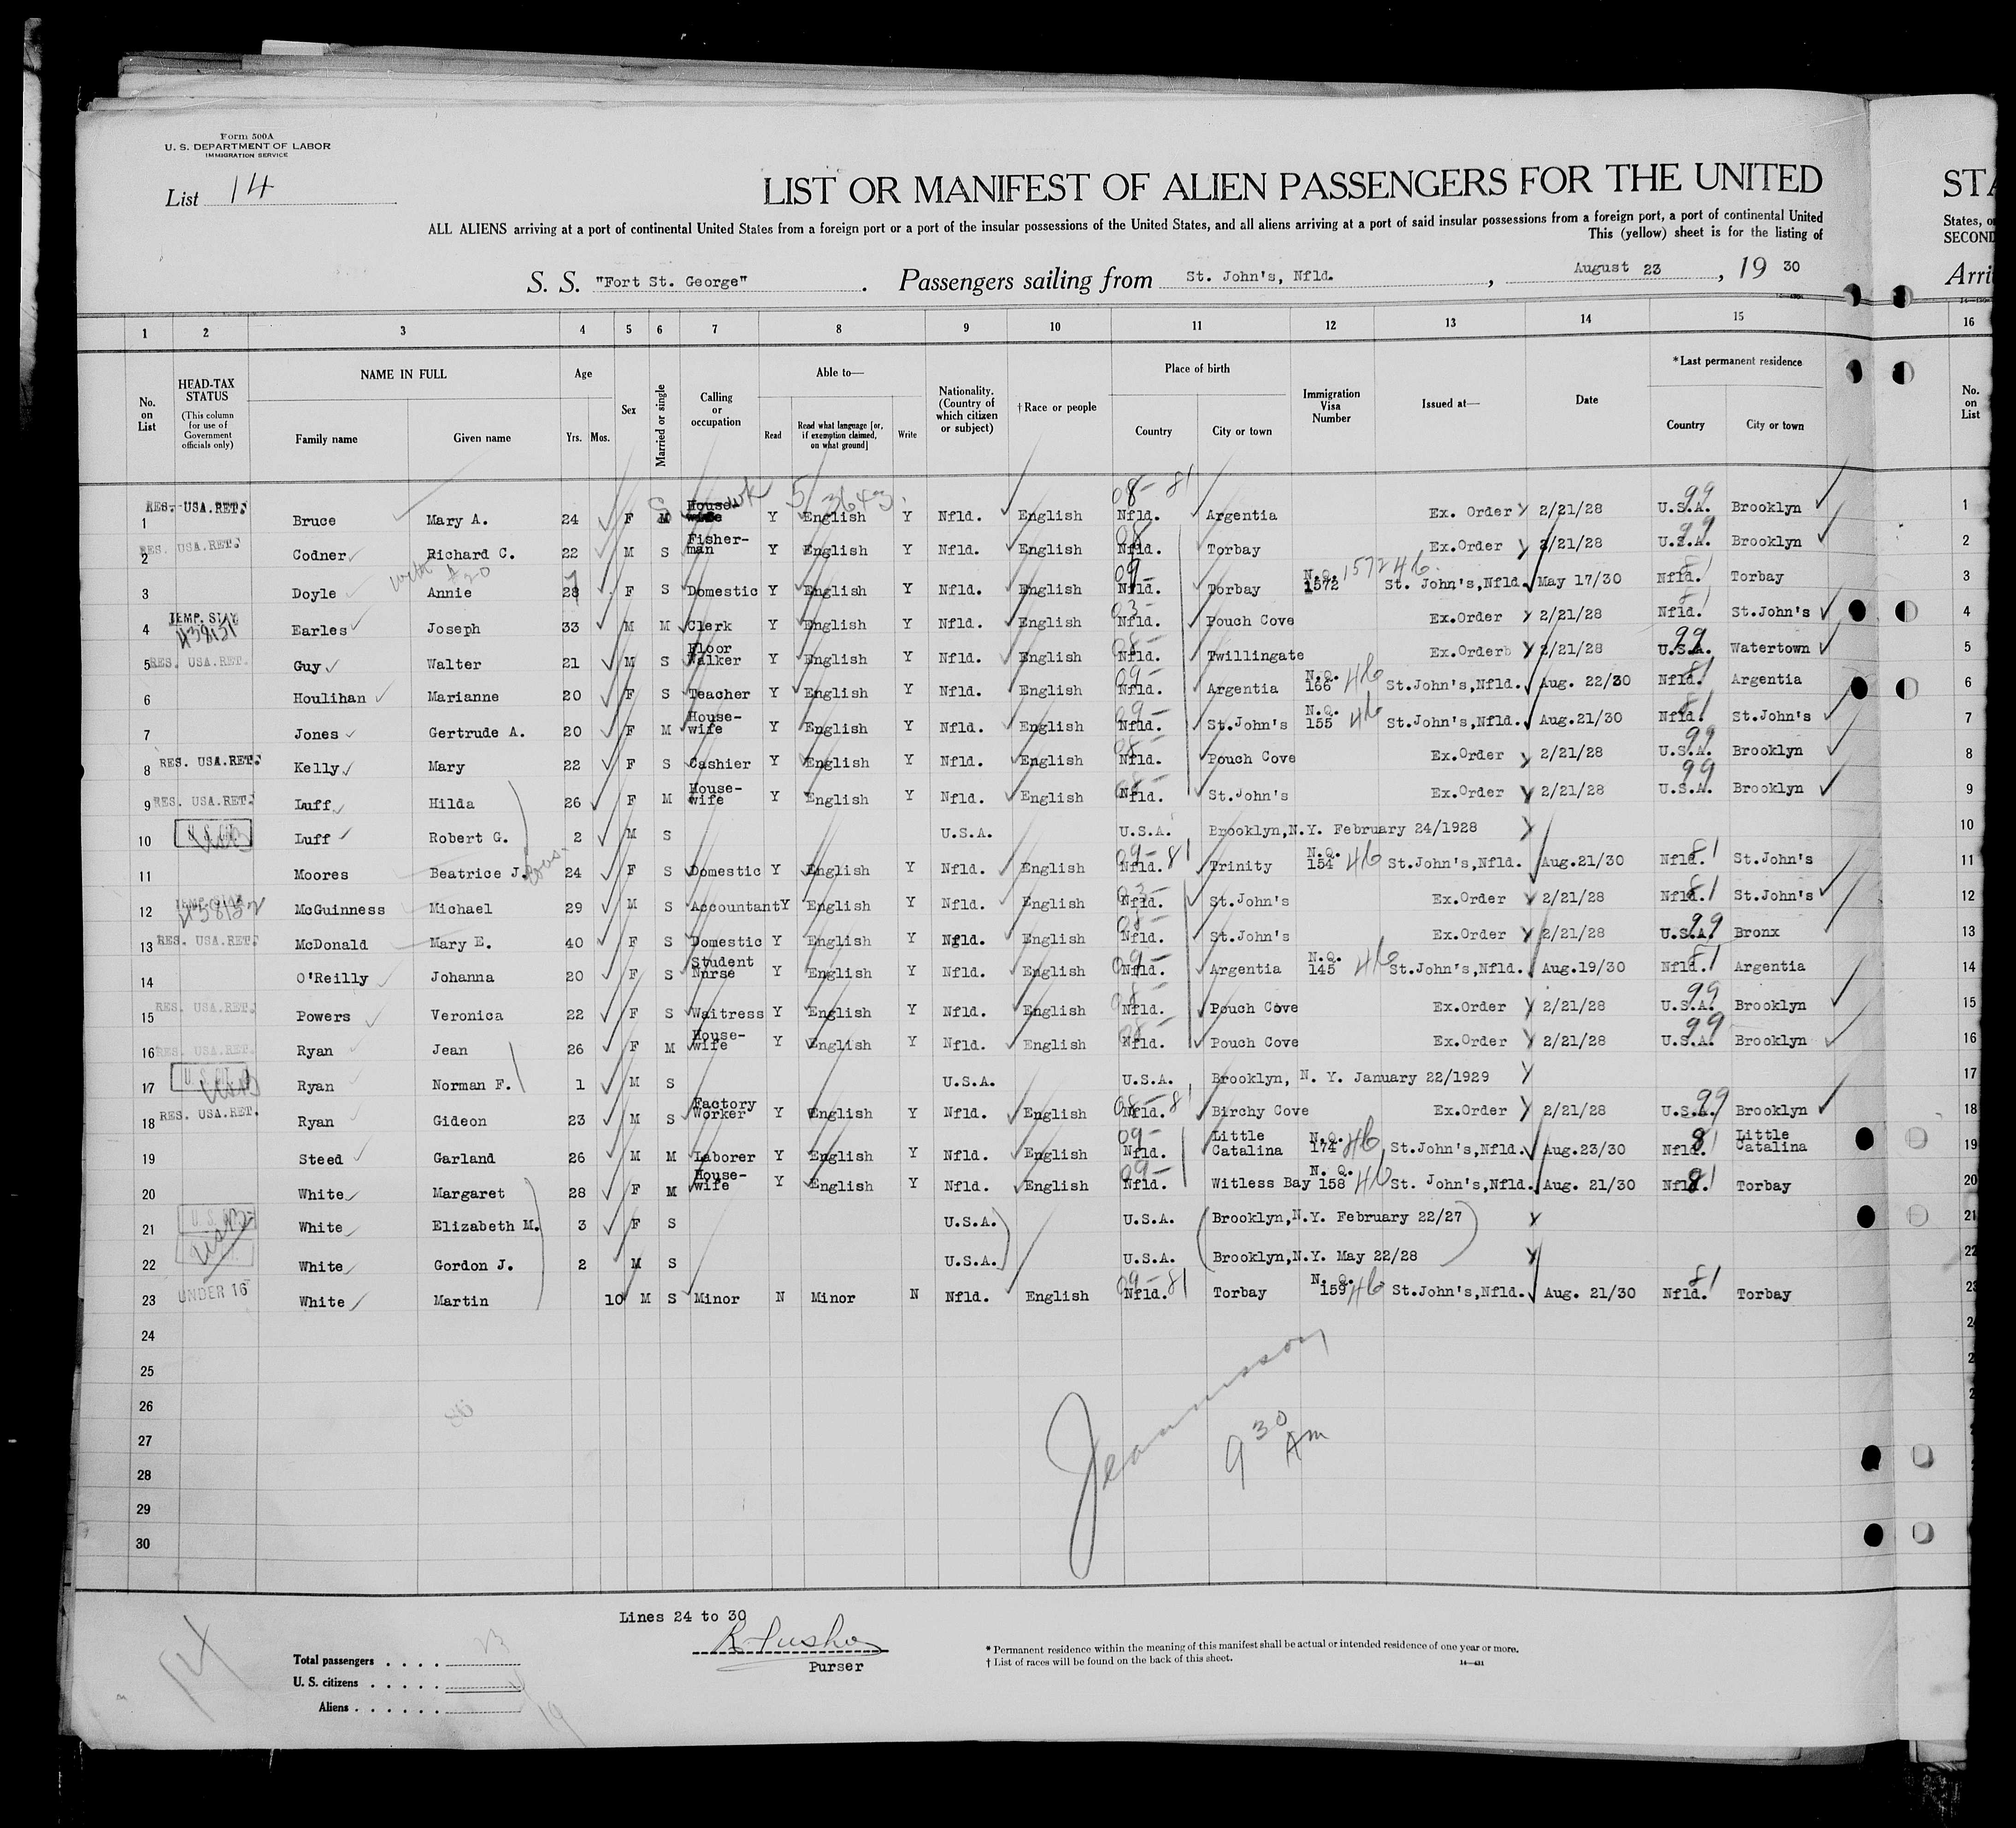 Form 500A
U. S. DEPARTMENT OF LABOR
IMMIGRATION SERVICE
List 14
LIST OR MANIFEST OF ALIEN PASSENGERS FOR THE UNITED
STA
ALL ALIENS arriving at a port of continental United States from a foreign port or a port of the insular possessions of the United States, and all aliens arriving at a port of said insular possessions from a foreign port, a port of continental United
States, o
This (yellow) sheet is for the listing of
SECOND
S. S. "Fort St. George". Passengers sailing from St. John's, Nfld., August 23, 1930
Arri
1 2 3 4 5 6 7 8 9 10 11 12 13 14 15 16
No. on List
HEAD-TAX STATUS
(This column for use of Government officials only)
NAME IN FULL
Family name
Given name
Age
Yrs. Mos.
Sex
Married or single
Calling or occupation
Able to—
Read
Read what language [or, if exemption claimed, on what ground]
Write
Nationality. (Country of which citizen or subject)
† Race or people
Place of birth
Country
City or town
Immigration Visa Number
Issued at—
Date
* Last permanent residence
Country
City or town
No. on List
S wk 5/3643 08- 81 99
RES. USA.RET. 1 Bruce Mary A. 24 F M House-wife Y English Y Nfld. English Nfld. Argentia Ex. Order 2/21/28 U.S.A. Brooklyn 1
RES. USA.RET. 2 Codner Richard C. 22 M S Fisher-man Y English Y Nfld. English Nfld. Torbay Ex.Order 2/21/28 U.S.A. Brooklyn 2
with #20
3 Doyle Annie 28 F S Domestic Y English Y Nfld. English Nfld. Torbay N.Q. 1572 1572 46 St. John's,Nfld. May 17/30 Nfld. Torbay 3
TEMP. STAY 4 Earles Joseph 33 M M Clerk Y English Y Nfld. English Nfld. Pouch Cove Ex.Order 2/21/28 Nfld. St.John's 4
RES. USA.RET. 5 Guy Walter 21 M S Floor Walker Y English Y Nfld. English Nfld. Twillingate Ex.Order 2/21/28 U.S.A. Watertown 5
6 Houlihan Marianne 20 F S Teacher Y English Y Nfld. English Nfld. Argentia N.Q. 166 46 St.John's,Nfld. Aug. 22/30 Nfld. Argentia 6
7 Jones Gertrude A. 20 F M House-wife Y English Y Nfld. English Nfld. St.John's N.Q. 155 46 St.John's,Nfld. Aug.21/30 Nfld. St.John's 7
RES. USA.RET. 8 Kelly Mary 22 F S Cashier Y English Y Nfld. English Nfld. Pouch Cove Ex.Order 2/21/28 U.S.A. Brooklyn 8
RES. USA.RET. 9 Luff Hilda 26 F M House-wife Y English Y Nfld. English Nfld. St.John's Ex.Order 2/21/28 U.S.A. Brooklyn 9
10 Luff Robert G. 2 M S U.S.A. U.S.A. Brooklyn,N.Y. February 24/1928 10
11 Moores Beatrice J. 24 F S Domestic Y English Y Nfld. English Nfld. Trinity N.Q. 154 46 St.John's,Nfld. Aug.21/30 Nfld. St.John's 11
TEMP. STAY 12 McGuinness Michael 29 M S Accountant Y English Y Nfld. English Nfld. St.John's Ex.Order 2/21/28 Nfld. St.John's 12
RES. USA.RET. 13 McDonald Mary E. 40 F S Domestic Y English Y Nfld. English Nfld. St.John's Ex.Order 2/21/28 U.S.A. Bronx 13
14 O'Reilly Johanna 20 F S Student Nurse Y English Y Nfld. English Nfld. Argentia N.Q. 145 46 St.John's,Nfld. Aug.19/30 Nfld. Argentia 14
RES. USA.RET. 15 Powers Veronica 22 F S Waitress Y English Y Nfld. English Nfld. Pouch Cove Ex.Order 2/21/28 U.S.A. Brooklyn 15
RES. USA.RET. 16 Ryan Jean 26 F M House-wife Y English Y Nfld. English Nfld. Pouch Cove Ex.Order 2/21/28 U.S.A. Brooklyn 16
17 Ryan Norman F. 1 M S U.S.A. U.S.A. Brooklyn, N. Y. January 22/1929 17
RES. USA.RET. 18 Ryan Gideon 23 M S Factory Worker Y English Y Nfld. English Nfld. Birchy Cove Ex.Order 2/21/28 U.S.A. Brooklyn 18
19 Steed Garland 26 M M Laborer Y English Y Nfld. English Nfld. Little Catalina N.Q. 174 46 St.John's,Nfld. Aug.23/30 Nfld. Little Catalina 19
20 White Margaret 28 F M House-wife Y English Y Nfld. English Nfld. Witless Bay N. Q. 158 46 St. John's,Nfld. Aug. 21/30 Nfld. Torbay 20
21 White Elizabeth M. 3 F S U.S.A. U.S.A. Brooklyn,N.Y. February 22/27 21
22 White Gordon J. 2 M S U.S.A. U.S.A. Brooklyn,N.Y. May 22/28 22
UNDER 16 23 White Martin 10 M S Minor N Minor N Nfld. English Nfld. Torbay N. Q. 159 46 St.John's,Nfld. Aug. 21/30 Nfld. Torbay 23
24
25
26
27
28
29
30
9 30 Am
Lines 24 to 30
Purser
14
Total passengers . . . . 23
U. S. citizens . . . . .
Aliens . . . . . . 19
* Permanent residence within the meaning of this manifest shall be actual or intended residence of one year or more.
† List of races will be found on the back of this sheet.